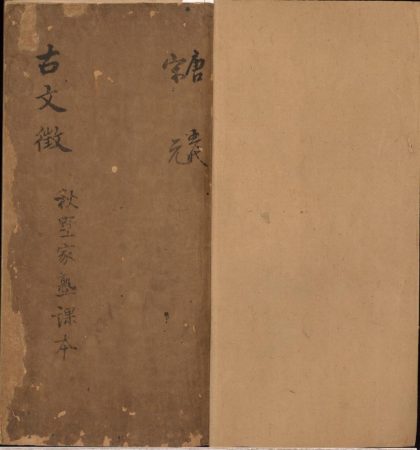 唐五代
宋元
古文徵
秋墅家塾課本